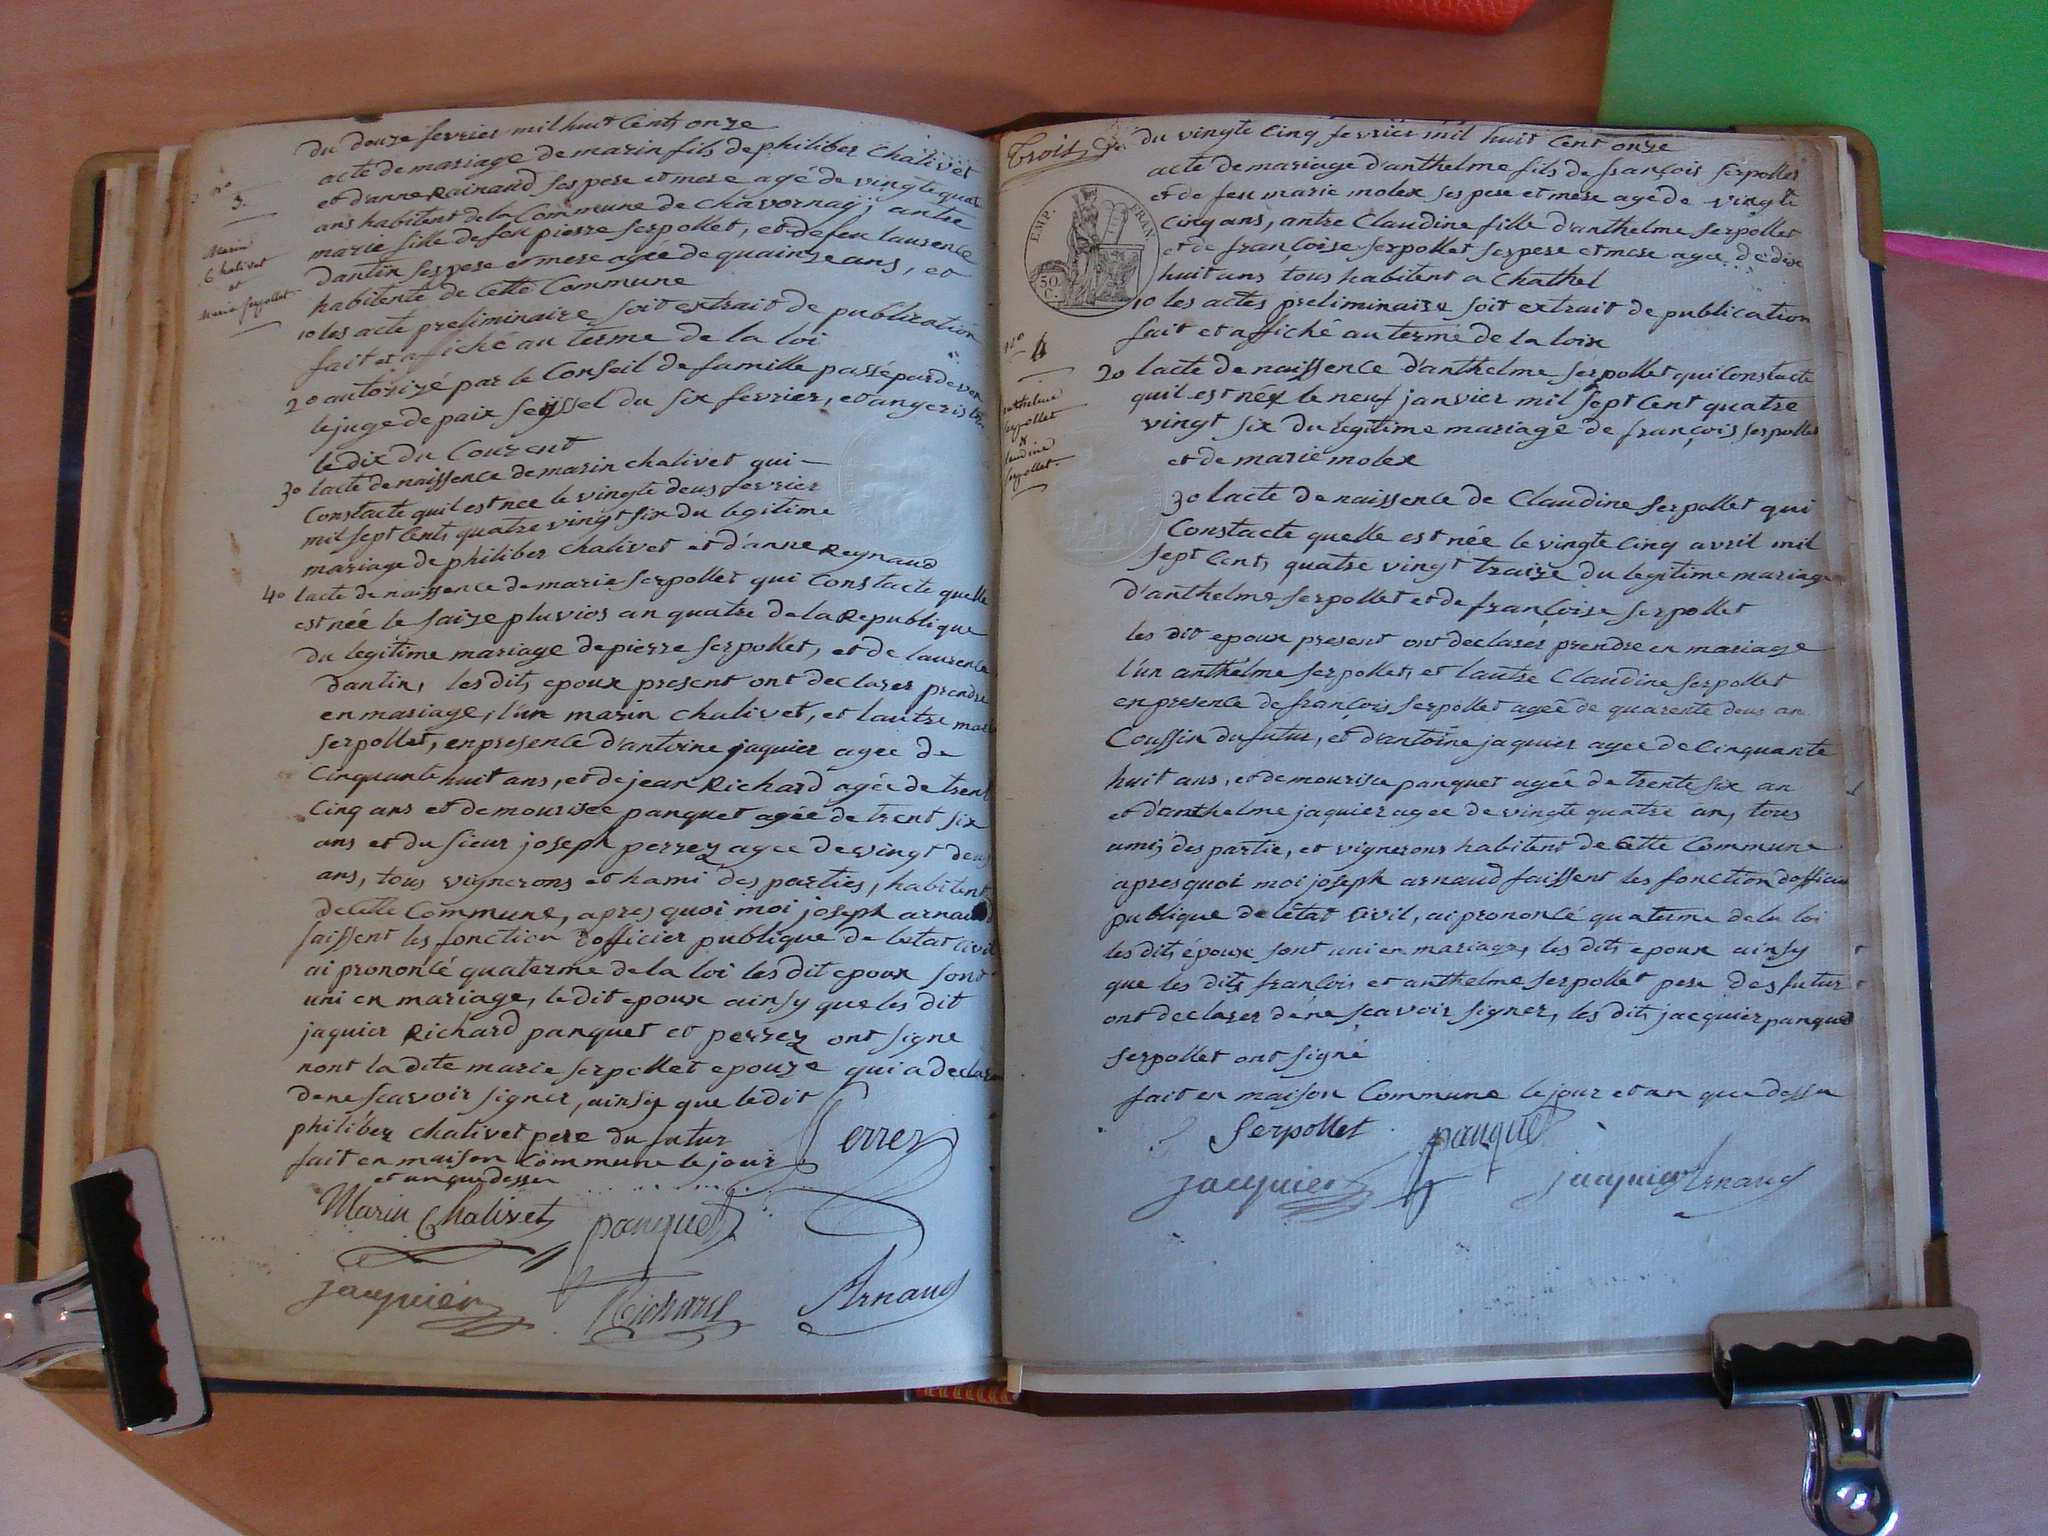 du douze fevrier mil huit Cents onze
acte de mariage de marin fils de philiber Chalivet
et d'anne Rainaud ses pere et mere agé de vingte quatr
ans habitent de la Commune de Chavornay; antre
marie fille de feu pierre serpollet, et de feu laurence
dantin ses pere et mere agée de quainze ans, et
habitente de Cette Commune
1o les acte preliminaire soit extrait de publication
fait et affiché au terme de la loi
2o autorizé par le Conseil de famille passé par deven
le juge de paix seyssel du six fevrier, et
le dix du Courent
3o lacte de naissence de marin chalivet qui -
Constacte quil est nee le vingte deus fevrier
mil sept Cents quatre vingt six du legitime
mariage de philiber chalivet et d'anne Reynaud
4o lacte de naissence de marie serpollet qui Constacte quelle
est née le saize pluvios an quatre de la Republique
du legitime mariage de pierre serpollet, et de laurence
dantin, les dits epoux present ont declarer prendre
en mariage, l'un marin chalivet, et lautre marie
serpollet, en presence d'antoine jaquier agee de
Cinquante huit ans, et de jean Richard agée de trent
Cinq ans et de mourisce panquet agée de trent six
ans et du sieur joseph perrez agee de vingt deus
ans, tous vignerons et hami des parties, habitent
de Cette Commune, apres quoi moi joseph arnaud
faissent les fonction dofficier publique de letat Civil
ai prononcé quaterme de la loi les dit epoux sont
uni en mariage, le dit epoux ainsy que les dit
jaquier Richard panquet et perrez ont signe
nont la dite marie serpollet epouze qui a declarer
de ne scavoir signer, ainsy que le dit
philiber chalivet pere du futur
fait en maison Commune le jour
et an que dessu
Perrez
Marin Chalivet panquet
jacquier Richard Arnaud
no
3.
Marin
Chalivet
et
Marie serpollet
Trois
du vingte Cinq fevrier mil huit Cent onze
acte de mariage d'anthelme fils de françois serpollet
et de feu marie molex ses pere et mere agé de vingte
Cinq ans, antre Claudine fille d'anthelme serpollet
et de françoise serpollet ses pere et mere agee de dix
huit ans tous habitent a Chathel
1o les actes preliminaire soit extrait de publication
fait et affiché au terme de la loix
2o lacte de naissence d'anthelme serpollet qui Constacte
quil est néy le neuf janvier mil sept Cent quatre
vingt six du legitime mariage de françois serpollet
et de marie molex
3o lacte de naissence de Claudine serpollet qui
Constacte quelle est née le vingte Cinq avril mil
sept Cents quatre vingt traize du legitime mariage
d'anthelme serpollet et de françoise serpollet
les dit epoux present ont declarer prendre en mariage
l'un anthelme serpollet, et lautre Claudine serpollet
en presence de françois serpollet agée de quarente deus an
Coussin du futur, et d'antoine jaquier agee de Cinquante
huit ans, et de mourise panquet agée de trente six an
et d'anthelme jaquier agee de vingte quatre an, tous
amis des partie, et vignerons habitent de Cette Commune
apres quoi moi joseph arnaud faissent les fonction dofficier
publique de létat Civil, ai prononcé quaterme de la loi
les dits époux sont uni en mariage, les dits epoux ainsy
que les dits françois et anthelme serpollet pere des futur
ont declarer de ne scavoir signer, les dits jacquier panquet
serpollet ont signé
fait en maison Commune le jour et an que dessu
Serpollet panquet
jacquier jacquier Arnaud
EMP. FRAN
50
C.
no 4
anthelme
serpollet
&
claudine
serpollet.